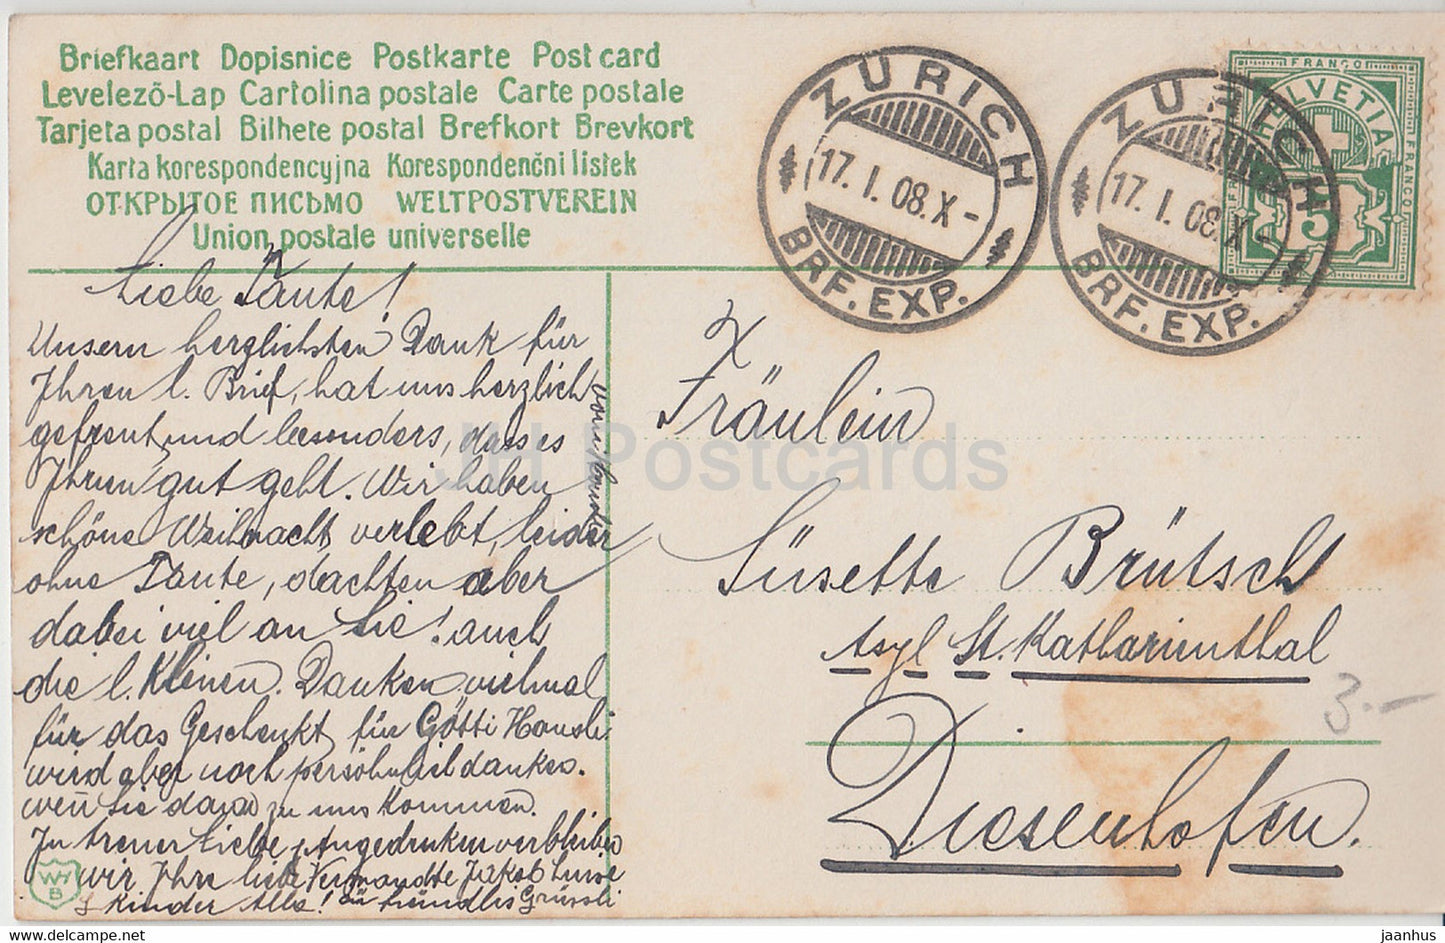 Briefkaart Dopisnice Postkarte Post card
Levelező-Lap Cartolina postale Carte postale
Tarjeta postal Bilhete postal Brefkort Brevkort
Karta korespondencyjna Korespondenčni listek
ОТКРЫТОЕ ПИСЬМО WELTPOSTVEREIN
Union postale universelle
ZÜRICH
17. I. 08. X -
BRF. EXP.
ZÜRICH
17. I. 08. X -
BRF. EXP.
FRANCO
HELVETIA
FRANCO
5
Liebe Tante!
Unsern herzlichsten Dank für
Ihren l. Brief, hat uns herzlich
gefreut, und besonders, dass es
Ihnen gut geht. Wir haben
schöne Weihnacht verlebt, leider
ohne Tante, dachten aber
dabei viel an Sie! auch
die l. Kleinen. Danken vielmal
für das Geschenkt für Götti Hansli
wird aber noch persöhnlich danken.
wen̄ Sie dann zu uns kommen.
In treuer Liebe Angedenken verbleiben
wir Ihre liebe Verwandte Jakob Luise
Kinder Alle! Grüssli
Fräulein
Süsette Brütsch
Asyl St. Katharienthal
Diesenhofen.
3.-
WH
B
JH Postcards
www.delcampe.net
jaanhus